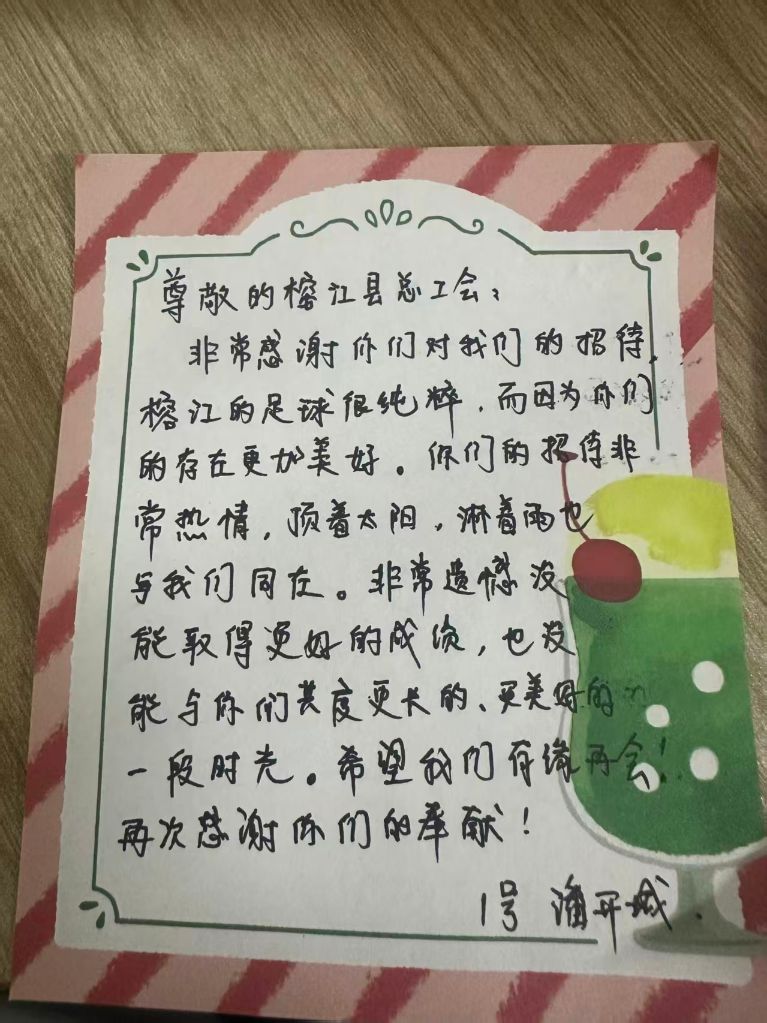 尊敬的榕江县总工会：
非常感谢你们对我们的招待，
榕江的足球很纯粹，而因为你们
的存在更加美好。你们的招待非
常热情，顶着太阳，淋着雨也
与我们同在。非常遗憾没
能取得更好的成绩，也没
能与你们共度更长的、更美好的
一段时光。希望我们有缘再会！
再次感谢你们的奉献！
1号 潘开城